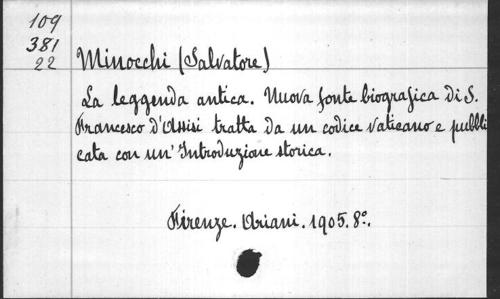 109
381
22
Minocchi (Salvatore)
La leggenda antica. Nuova fonte biografica di S.
Francesco d'Assisi tratta da un codice vaticano e pubbli
cata con un' Introduzione storica.
Firenze. Ariani. 1905. 8º.